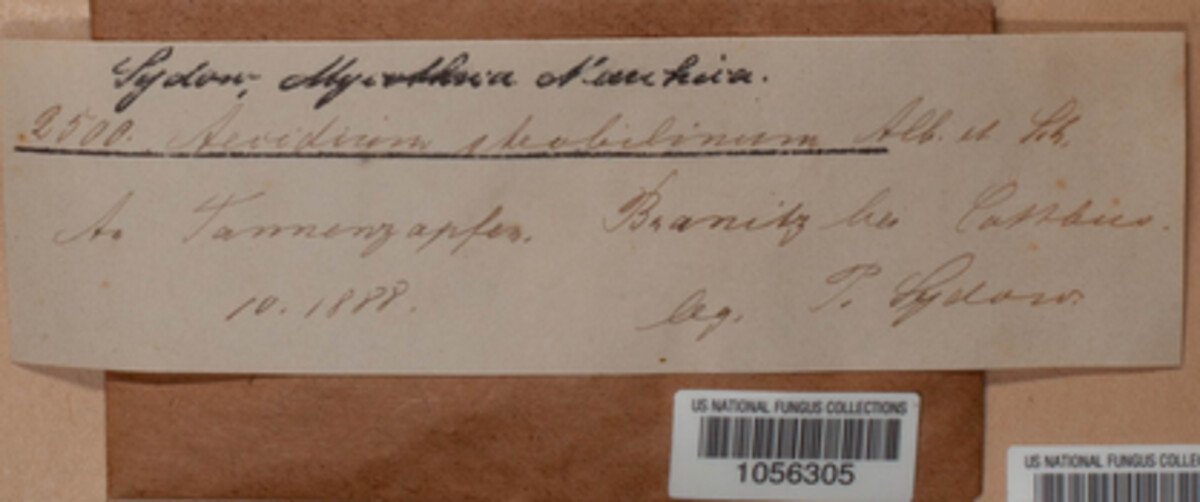 Sydow, Mycotheca Marchica.
2500. Aecidium strobilinum Alb. et Sch.
An Tannenzapfen. Branitz bei Cottbus.
10. 1888. leg. P. Sydow.
US NATIONAL FUNGUS COLLECTIONS
1056305
US NATIONAL FUNGUS COLLE